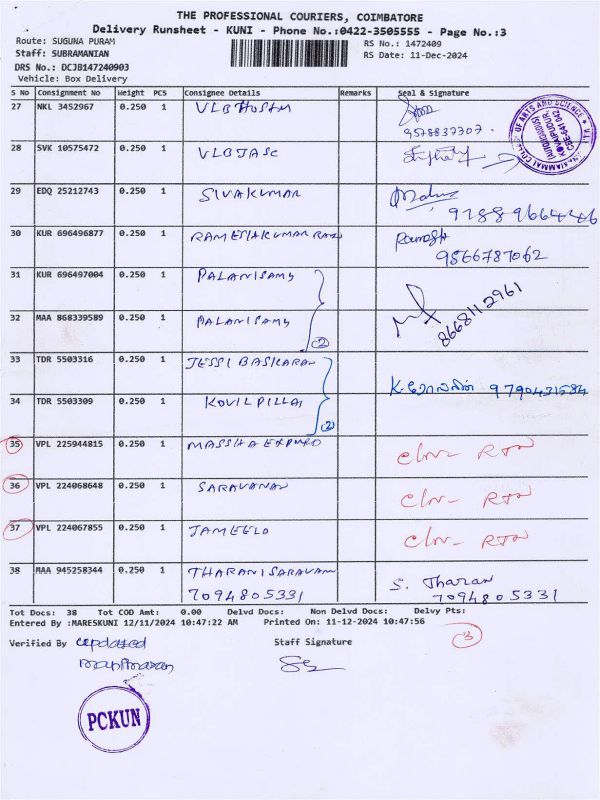 THE PROFESSIONAL COURIERS, COIMBATORE
Delivery Runsheet - KUNI - Phone No.:0422-3505555 - Page No.:3
Route: SUGUNA PURAM
RS No.: 1472409
Staff: SUBRAMANIAN
RS Date: 11-Dec-2024
DRS No.: DCJB147240903
Vehicle: Box Delivery
S No Consignment No Weight PCS Consignee Details Remarks Seal & Signature
27 NKL 3452967 0.250 1 VLB Hostm
9578837707.
28 SVK 10575472 0.250 1 VLBJASC
29 EDQ 25212743 0.250 1 SIVAKUMAR
9788966446
30 KUR 696496877 0.250 1 Ramesh
9566787062
31 KUR 696497004 0.250 1 PALANISAMY
8668112961
32 MAA 868339589 0.250 1 PALANISAMY
(2)
33 TDR 5503316 0.250 1 JESSI BASKARAN
K. 9790431584
34 TDR 5503309 0.250 1 KOVILPILLAI
(2)
35 VPL 225944815 0.250 1 RTN
36 VPL 224068648 0.250 1 SARAVANAN RTN
37 VPL 224067855 0.250 1 RTN
38 MAA 945258344 0.250 1 THARANISARAVAN S. Tharan
7094805331 7094805331
Tot Docs: 38 Tot COD Amt: 0.00 Delvd Docs: Non Delvd Docs: Delvy Pts:
Entered By :MARESKUNI 12/11/2024 10:47:22 AM Printed On: 11-12-2024 10:47:56
3
Verified By updated Staff Signature
PCKUN